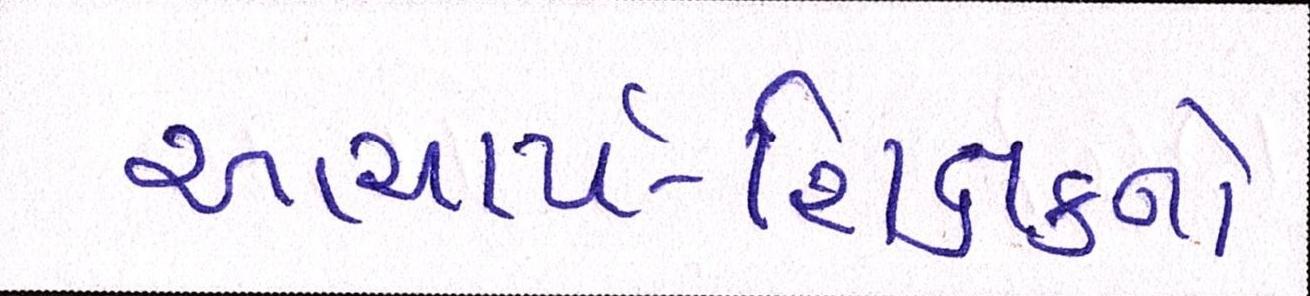 આચાર્ય-શિક્ષકનો